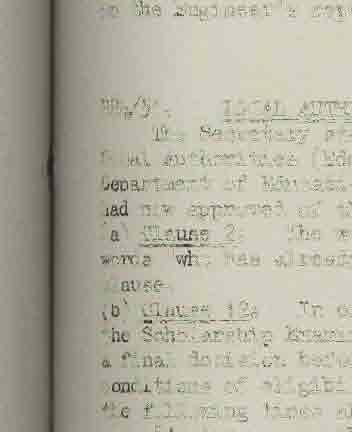 on the Engineer's
LOCAL AUTH
The Secretary
Local Authorities (Ed
Department of Educati
had now approved of th
(a) Clause 2: The w
words who has alread
clause.
(b) Clause 12: In o
the Scholarship Exami
a final decision befo
conditions of eligibi
the following lines a